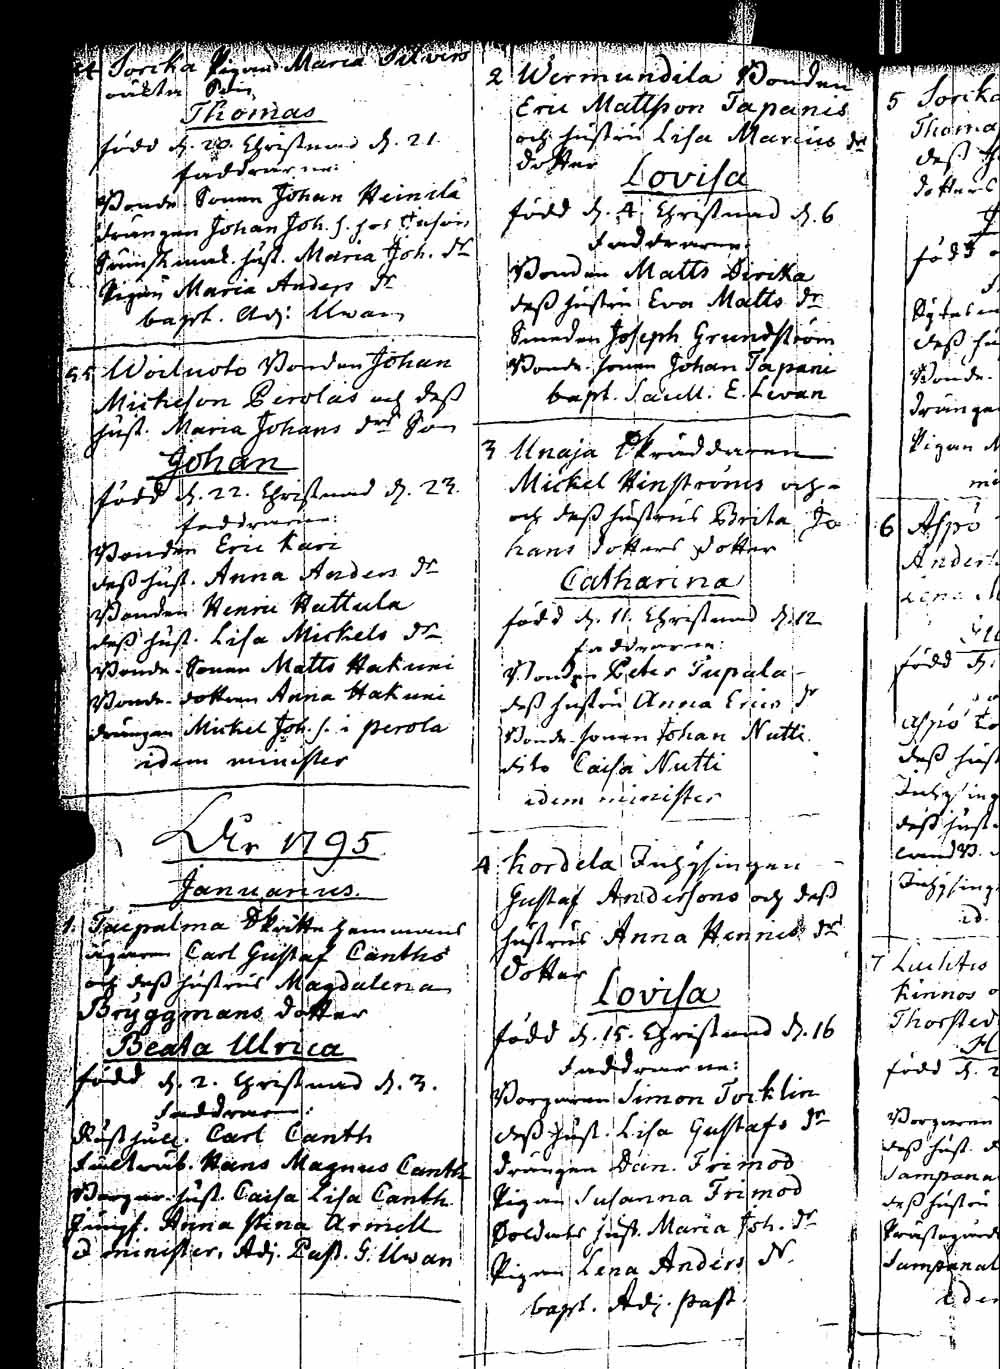 Sorcka Pigan Maria Silvers
oäkta Son
Thomas
född d. 20. Christnad d. 21.
faddrarne:
Bonde Sonen Johan Heinilä
drängen Johan Joh. S. hos
hust. Maria Joh. dr
Pigan Maria Anders dr
bapt. Adj. Uwan
55 Woiluoto Bonden Johan
Mickelson Perolas och dess
hust. Maria Johans drs Son
Johan
född d. 22. Christnad d. 23.
faddrarne:
Bonden Eric Kari
dess hust. Anna Anders dr
Bonden Henric Hattula
dess hust. Lisa Mickels dr
Bonde Sonen Matts Hakuni
Bonde dottren Anna Hakuni
drängen Mickel Joh. s. i perola
idem minister
År 1795
Januarius.
1. Taipalma Skatte hemmans
ägaren Carl Gustaf Canths
och dess hustrus Magdalena
Bryggmans dotter
Beata Ulrica
född d. 2. Christnad d. 3.
Faddrarne:
Rusthåll. Carl Canth
Hans Magnus Canth
Borgar hust. Caisa Lisa Canth
Jungf. Anna Stina Armell
id minister, Adj. Past. G. Uwan
2 Wermundila Bonden
Eric Mattsson Tapanis
och hustru Lisa Marcus dr
dotter
Lovisa
född d. 4 Christnad d. 6
Faddrarne:
Bonden Matts Dirika
dess hustru Eva Matts dr
Smeden Joseph Grundström
Bonde sonen Johan Tapani
bapt. Sacell. E. Levan
3 Unaja Skräddaren
Mickel Hinströms och
och dess hustrus Brita Jo
hans dotters dotter
Catharina
född d. 11. Christnad d. 12
faddrarne:
Bonden Peter Tupala
dess hustru Anna Erics dr
Bonde sonen Johan Nutti
dito Caisa Nutti
idem minister
4 Kordela Inhysingen
Gustaf Anderssons och dess
hustrus Anna Hennis drs
dotter
Lovisa
född d. 15. Christnad d. 16
Faddrarne:
Borgaren Simon Torklin
dess hust. Lisa Gustafs dr
drängen Dan. Trimod
Pigan Susanna Trimod
Soldats hust. Maria Joh. dr
Pigan Lena Anders dr
bapt. Adj. past.
5 Sorcka
Thoma
dess
dotters
född
dess hu
Bonde
dränge
Pigan M
6 Aspö
Anders
född d.
Aspö
dess hust
Inhysing
dess hust.
Inhysing
id.
7 Luchtis
Kinnos o
Thorsted
född d. 2
Borgaren
dess hust.
Sampana
dess hustru
Sampanal
idem